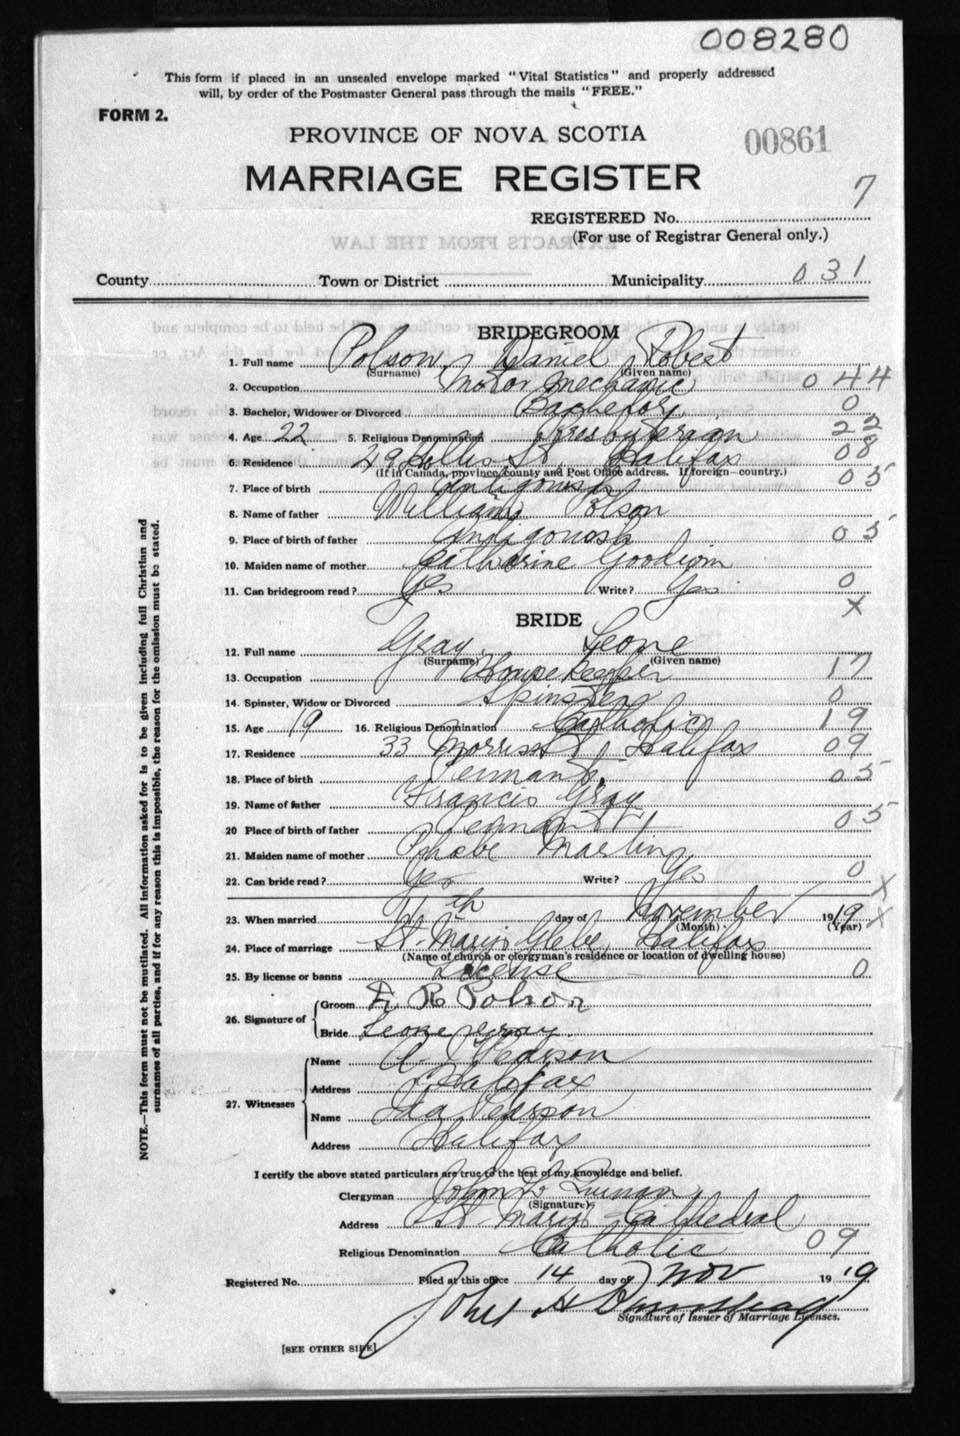 008280
This form if placed in an unsealed envelope marked "Vital Statistics" and properly addressed
will, by order of the Postmaster General pass through the mails "FREE."
FORM 2.
PROVINCE OF NOVA SCOTIA
00861
MARRIAGE REGISTER
7
REGISTERED No.
(For use of Registrar General only.)
County Town or District Municipality 031
BRIDEGROOM
1. Full name Polson, Daniel Robert
(Surname) (Given name)
2. Occupation Motor Mechanic 044
3. Bachelor, Widower or Divorced Bachelor 0
4. Age 22 5. Religious Denomination Presbyterian 22
6. Residence 29 Hollis St. Halifax 08
(If in Canada, province, county and Post Office address. If foreign—country.)
7. Place of birth Antigonish 05
8. Name of father William Polson
9. Place of birth of father Antigonish 05
10. Maiden name of mother Catherine
11. Can bridegroom read? Yes Write? Yes 0
X
BRIDE
12. Full name Gray, Leone
(Surname) (Given name)
13. Occupation Housekeeper 17
14. Spinster, Widow or Divorced Spinster 0
15. Age 19 16. Religious Denomination Catholic 19
17. Residence 33 Morris St, Halifax 09
18. Place of birth 05
19. Name of father Francis Gray
20 Place of birth of father 05
21. Maiden name of mother Phoebe Martin
22. Can bride read? Yes Write? Yes 0
X
23. When married th day of November 1919 X
(Month) (Year)
24. Place of marriage St. Mary's Glebe, Halifax
(Name of church or clergyman's residence or location of dwelling house)
25. By license or banns License 0
26. Signature of Groom D R Polson
Bride Leone Gray
27. Witnesses Name
Address Halifax
Name
Address Halifax
I certify the above stated particulars are true to the best of my knowledge and belief.
Clergyman John
(Signature)
Address St. Mary's Cathedral
Religious Denomination Catholic 09
Registered No. Filed at this office 14 day of Nov 1919
John H
Signature of Issuer of Marriage Licenses.
[SEE OTHER SIDE]
NOTE.—This form must not be mutilated. All information asked for is to be given including full Christian and
surnames of all parties, and if for any reason this is impossible, the reason for the omission must be stated.